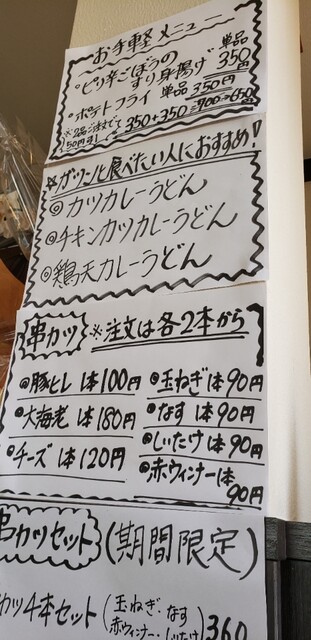 お手軽メニュー
・ピリ辛ごぼうの
すり身揚げ 単品 350円
・ポテトフライ 単品 350円
※2品注文で 350+350 700→650円
50円引!
☆ガツンと食べたい人におすすめ!
◎カツカレーうどん
◎チキンカツカレーうどん
◎鶏天カレーうどん
串カツ ※注文は各2本から
◎豚ヒレ 1本100円
・大海老 1本180円
・チーズ 1本120円
◎玉ねぎ 1本90円
・なす 1本90円
・しいたけ 1本90円
・赤ウィンナー 1本
90円
串カツセット (期間限定)
カツ4本セット (玉ねぎ・なす
赤ウィンナー・しいたけ) 360